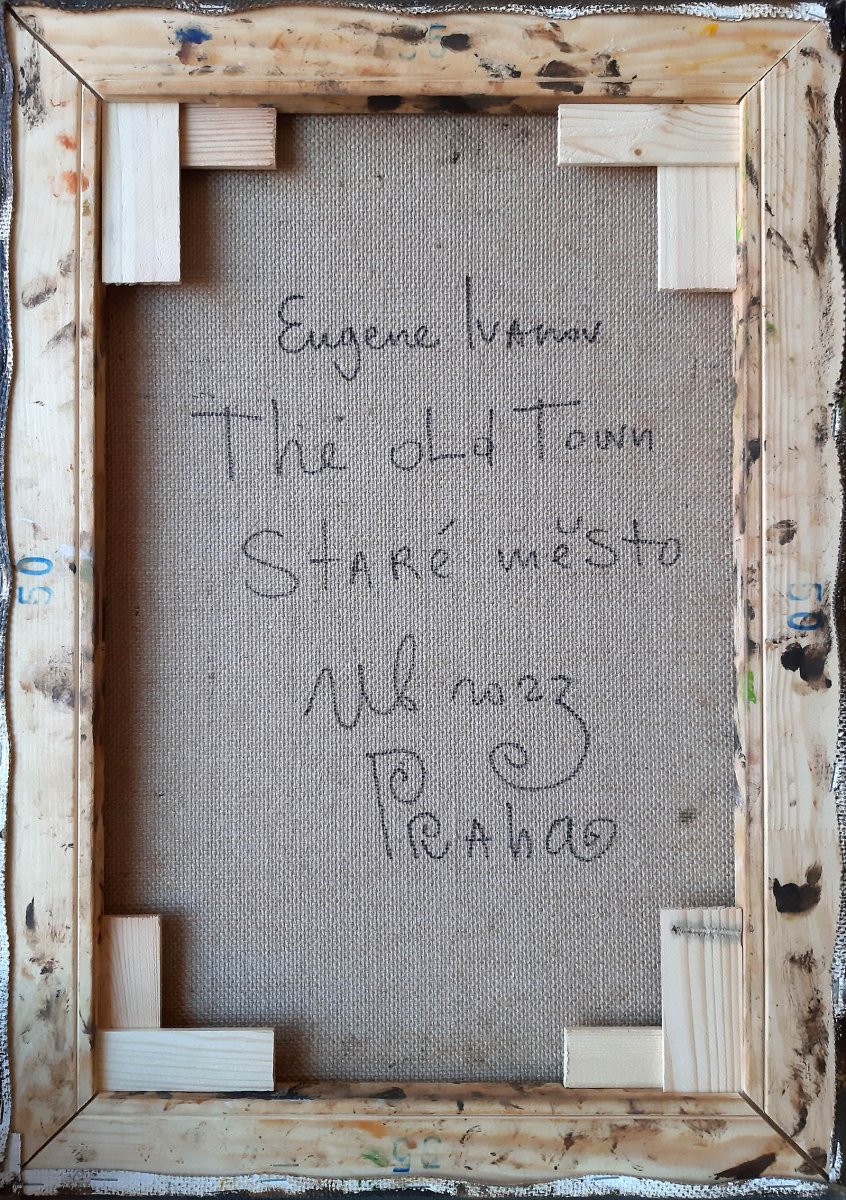 35
Eugene Ivanov
The old Town
Staré město
2023
Praha
50
50
35